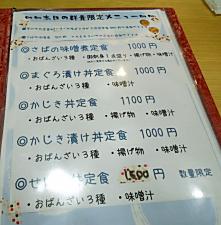 本日の数量限定メニュー
◎さばの味噌煮定食 1000円
・おばんざい3種 ・揚げ物 ・味噌汁
◎まぐろ漬け丼定食 1000円
・おばんざい3種 ・味噌汁
◎かじき丼定食 1100円
・おばんざい3種 ・揚げ物 ・味噌汁
◎かじき漬け丼定食 1100円
・おばんざい3種 ・揚げ物 ・味噌汁
定食 円 数量限定
・おばんざい3種 ・味噌汁